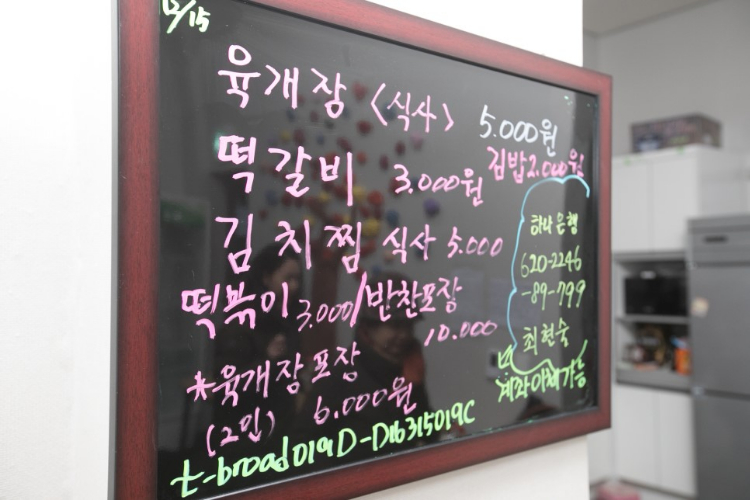 12/15
육개장 <식사> 5.000원
김밥 2.000원
떡갈비 3.000원
김치찜 식사 5.000
떡볶이 3.000/반찬포장
10.000
*육개장 포장
(2인) 6.000원
t-broad019D-D16315019C
하나은행
620-2246
-89-799
최현숙
계좌이체가능